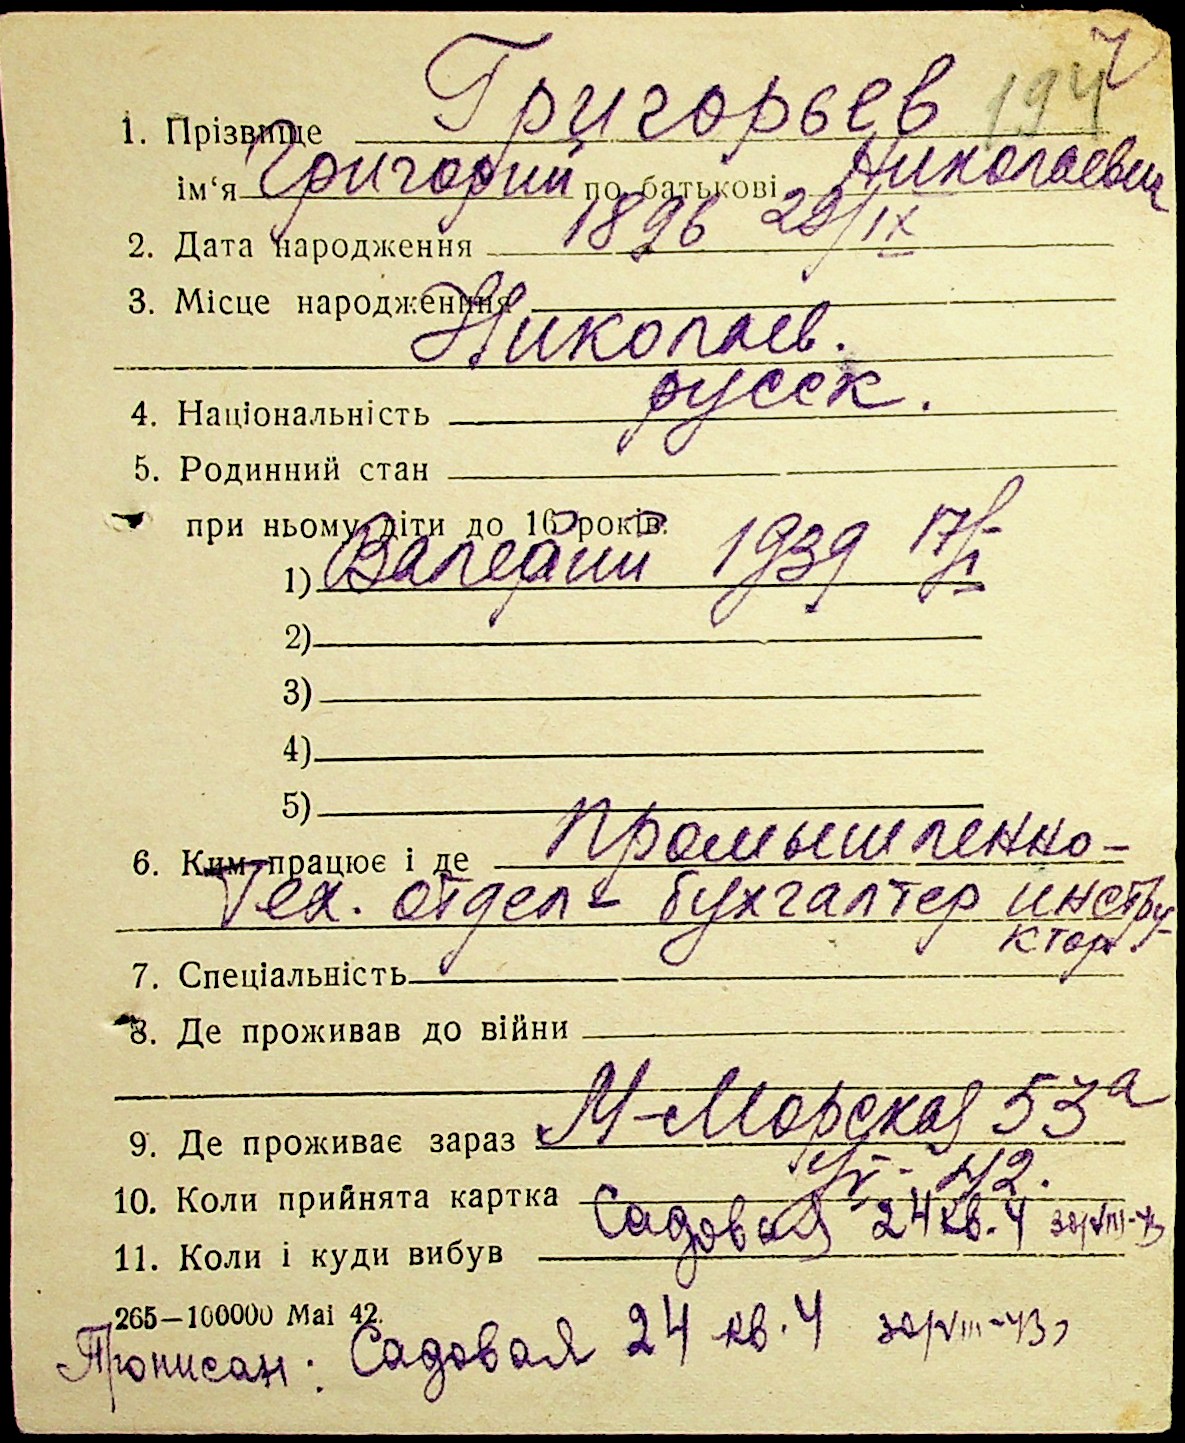 194
1. Прізвище Григорьев
ім‘я Григорий по батькові Николаевич
2. Дата народження 1896 29/IX
3. Місце народження
Николаев.
4. Національність русск.
5. Родинний стан
при ньому діти до 16 років:
1) Валерий 1939 17/I
2)
3)
4)
5)
6. Ким працює і де Промышленно-
Тех. отдел - бухгалтер инстру-
ктор
7. Спеціальність
8. Де проживав до війни
9. Де проживає зараз М-Морская 53а
10. Коли прийнята картка 42.
11. Коли і куди вибув Садовая 24 кв. 4 30/VIII-43
265—100000 Mai 42.
Прописан: Садовая 24 кв. 4 30/VIII-43